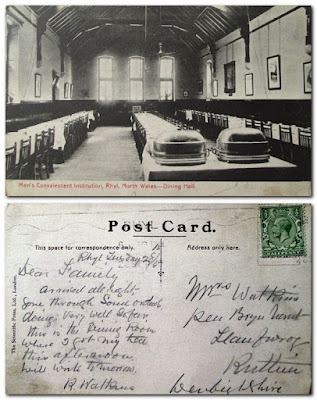 Men's Convalescent Institution, Rhyl, North Wales—Dining Hall.
Post Card.
This space for correspondence only.
Address only here.
The Scientific Press, Ltd., London.
Rhyl Tuesday
Dear Family
arrived all right
gone through Some
doing Very well So far.
this is the Dining Room
where I got my tea
this afternoon.
will write tomorrow.
R Watkins
Mrs Watkins
Pen Bryn
Llan
Ruthin
Denbighshire